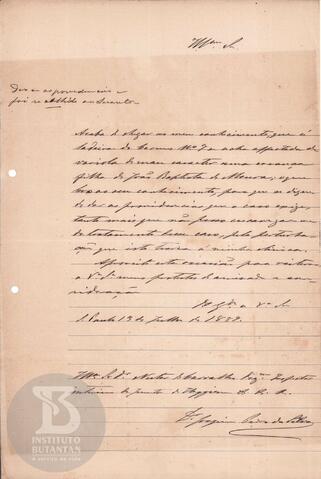 Illmo. Sr.
Deu-se as providencias e
foi recolhido ao
Acaba de chegar ao meu conhecimento, que á
ladeira do Carmo Nº 7 se acha affectada de
variola de mau caracter uma creança
filha de João Baptista de Moura; o que
levo ao seu conhecimento, para que se digne
de dar as providencias que o caso exige,
tanto mais que não posso encarregar-me
do tratamento desse caso, pela perturba-
ção que isto traria á minha clinica.
Aproveito esta occasião para reiterar
a Vª Sª meus protestos de amizade e con-
sideração
Ds. Gde. a V. S.
S. Paulo 13 de Julho de 1889.
Illmo. Sr. Dr. de Carvalho Digmo. Inspector
interino de Hygiene
Dr. Joaquim da Silva
INSTITUTO
BUTANTAN
A SERVIÇO DA VIDA